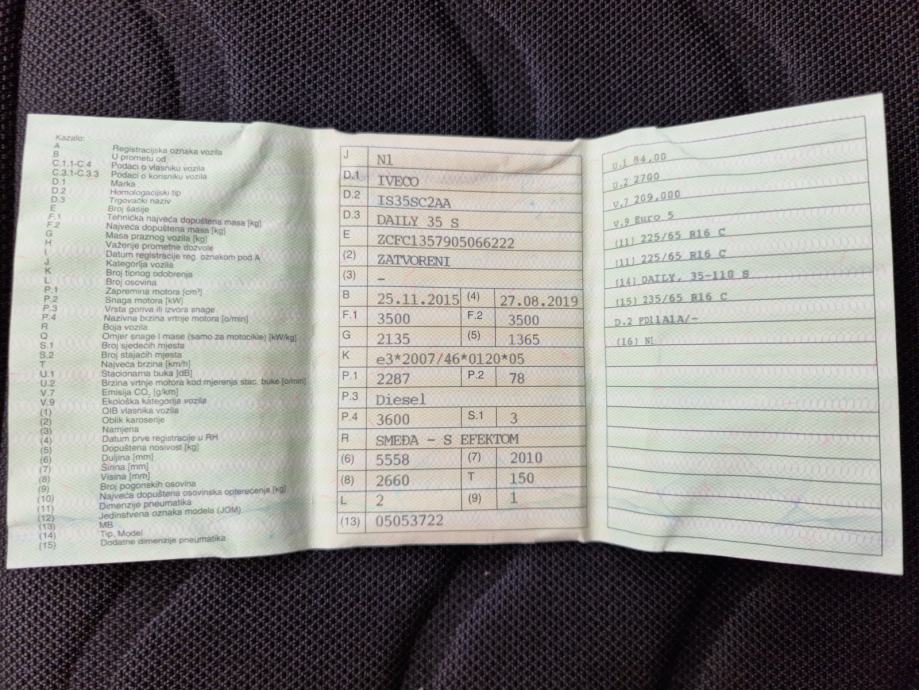 Kazalo:
A Registracijska oznaka vozila
B U prometu od
C.1.1-C.4 Podaci o vlasniku vozila
C.3.1-C.3.3 Podaci o korisniku vozila
D.1 Marka
D.2 Homologacijski tip
D.3 Trgovački naziv
E Broj šasije
F.1 Tehnička najveća dopuštena masa [kg]
F.2 Najveća dopuštena masa [kg]
G Masa praznog vozila [kg]
H Važenje prometne dozvole
I Datum registracije reg. oznakom pod A
J Kategorija vozila
K Broj tipnog odobrenja
L Broj osovina
P.1 Zapremina motora [cm³]
P.2 Snaga motora [kW]
P.3 Vrsta goriva ili izvora snage
P.4 Nazivna brzina vrtnje motora [o/min]
R Boja vozila
Q Omjer snage i mase (samo za motocikle) [kW/kg]
S.1 Broj sjedećih mjesta
S.2 Broj stajaćih mjesta
T Najveća brzina [km/h]
U.1 Stacionarna buka [dB]
U.2 Brzina vrtnje motora kod mjerenja stac. buke [o/min]
V.7 Emisija CO₂ [g/km]
V.9 Ekološka kategorija vozila
(1) OIB vlasnika vozila
(2) Oblik karoserije
(3) Namjena
(4) Datum prve registracije u RH
(5) Dopuštena nosivost [kg]
(6) Duljina [mm]
(7) Širina [mm]
(8) Visina [mm]
(9) Broj pogonskih osovina
(10) Najveća dopuštena osovinska opterećenja [kg]
(11) Dimenzije pneumatika
(12) Jedinstvena oznaka modela (JOM)
(13) MB
(14) Tip, Model
(15) Dodatne dimenzije pneumatika
J N1
D.1 IVECO
D.2 IS35SC2AA
D.3 DAILY 35 S
E ZCFC1357905066222
(2) ZATVORENI
(3) –
B 25.11.2015 (4) 27.08.2019
F.1 3500 F.2 3500
G 2135 (5) 1365
K e3*2007/46*0120*05
P.1 2287 P.2 78
P.3 Diesel
P.4 3600 S.1 3
R SMEĐA - S EFEKTOM
(6) 5558 (7) 2010
(8) 2660 T 150
L 2 (9) 1
(13) 05053722
U.1 84,00
U.2 2700
V.7 209,000
V.9 Euro 5
(11) 225/65 R16 C
(11) 225/65 R16 C
(14) DAILY, 35-110 S
(15) 235/65 R16 C
D.2 PD11A1A/-
(16) N1